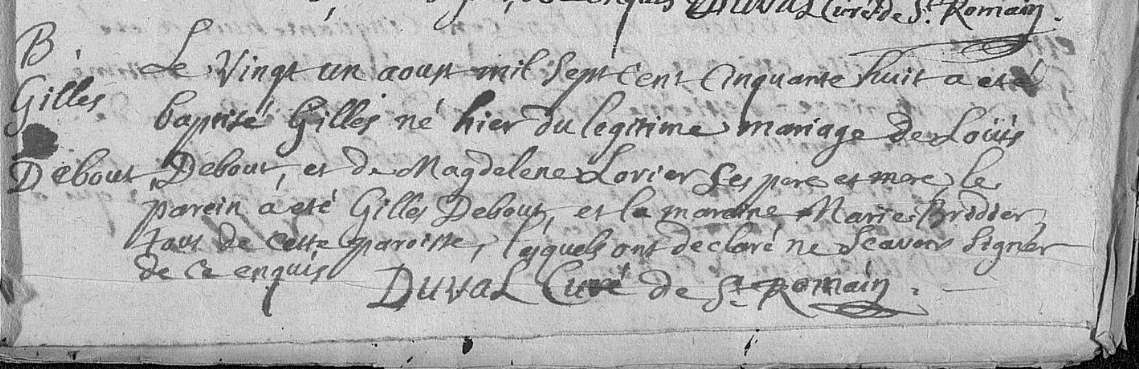 enquis DUVAL Curé de St Romain.
B.
Gilles
Debout
Le vingt un aoust mil sept cent cinquante huit a eté
baptisé Gilles né hier du legitime mariage de Loüis
Debout, et de Magdelene Lorier ses pere et mere, le
parein a eté Gilles Debout, et la maraine Marie Bridier
tous de cette paroisse, lesquels ont declaré ne scavoir signer
de ce enquis
DUVAL Curé de St Romain.